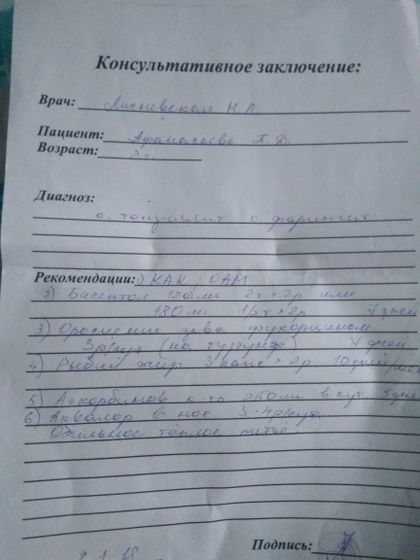 Консультативное заключение:
Врач: Лисневская Н.А.
Пациент: Афанасьева П. Д.
Возраст:
Диагноз:
о. тонзиллит о. фарингит
Рекомендации: 1) КАК, ОАМ
2) Бисептол 120мг 2т × 2р или
480мг 1/2т × 2р 7 дней
3) Орошение зева фукорцином
3р/сут (на турунде) 7 дней
4) Рыбий жир 3 капс × 2р 10 дней/мес
5) Аскорбинов к-та 250мг в сут. 5 дней
6) Аквалор в нос 3-4р/сут.
Обильное теплое питьё.
Подпись: